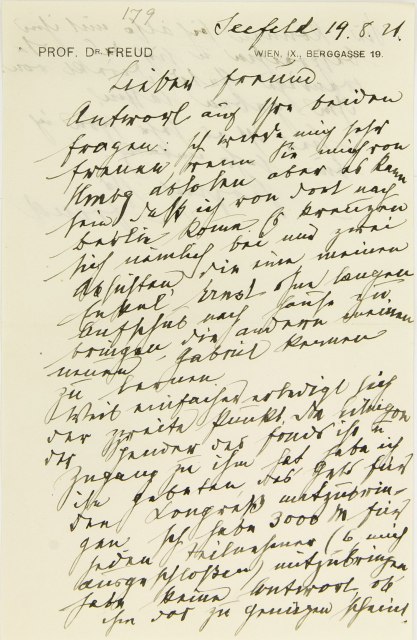 179
Seefeld 19. 8. 21.
PROF. DR. FREUD
WIEN, IX., BERGGASSE 19.
Lieber Freund
Antwort auf Ihre beiden
Fragen: Ich würde mich sehr
freuen wenn Sie mich von
Hmbg abholen aber es kann
sein, daß ich von dort nach
Berlin komme. Es kreuzen
sich nämlich bei uns zwei
Absichten, die eine meinen
Enkel Ernst ohne langen
Aufschub nach Hause zu
bringen, die andere meinen
neuen Gabriel kennen
zu lernen.
Weit einfacher erledigt sich
der zweite Punkt. Da
der Spender des Fonds
Zugang zu ihm hat habe ich
ihn gebeten das Geld für
den Congreß mitzubrin-
gen. Ich habe 3000 M für
jeden Teilnehmer (6 mich
ausgeschloßen) mitzubringen
habe keine Antwort ob
ihm das zu genügen scheint.